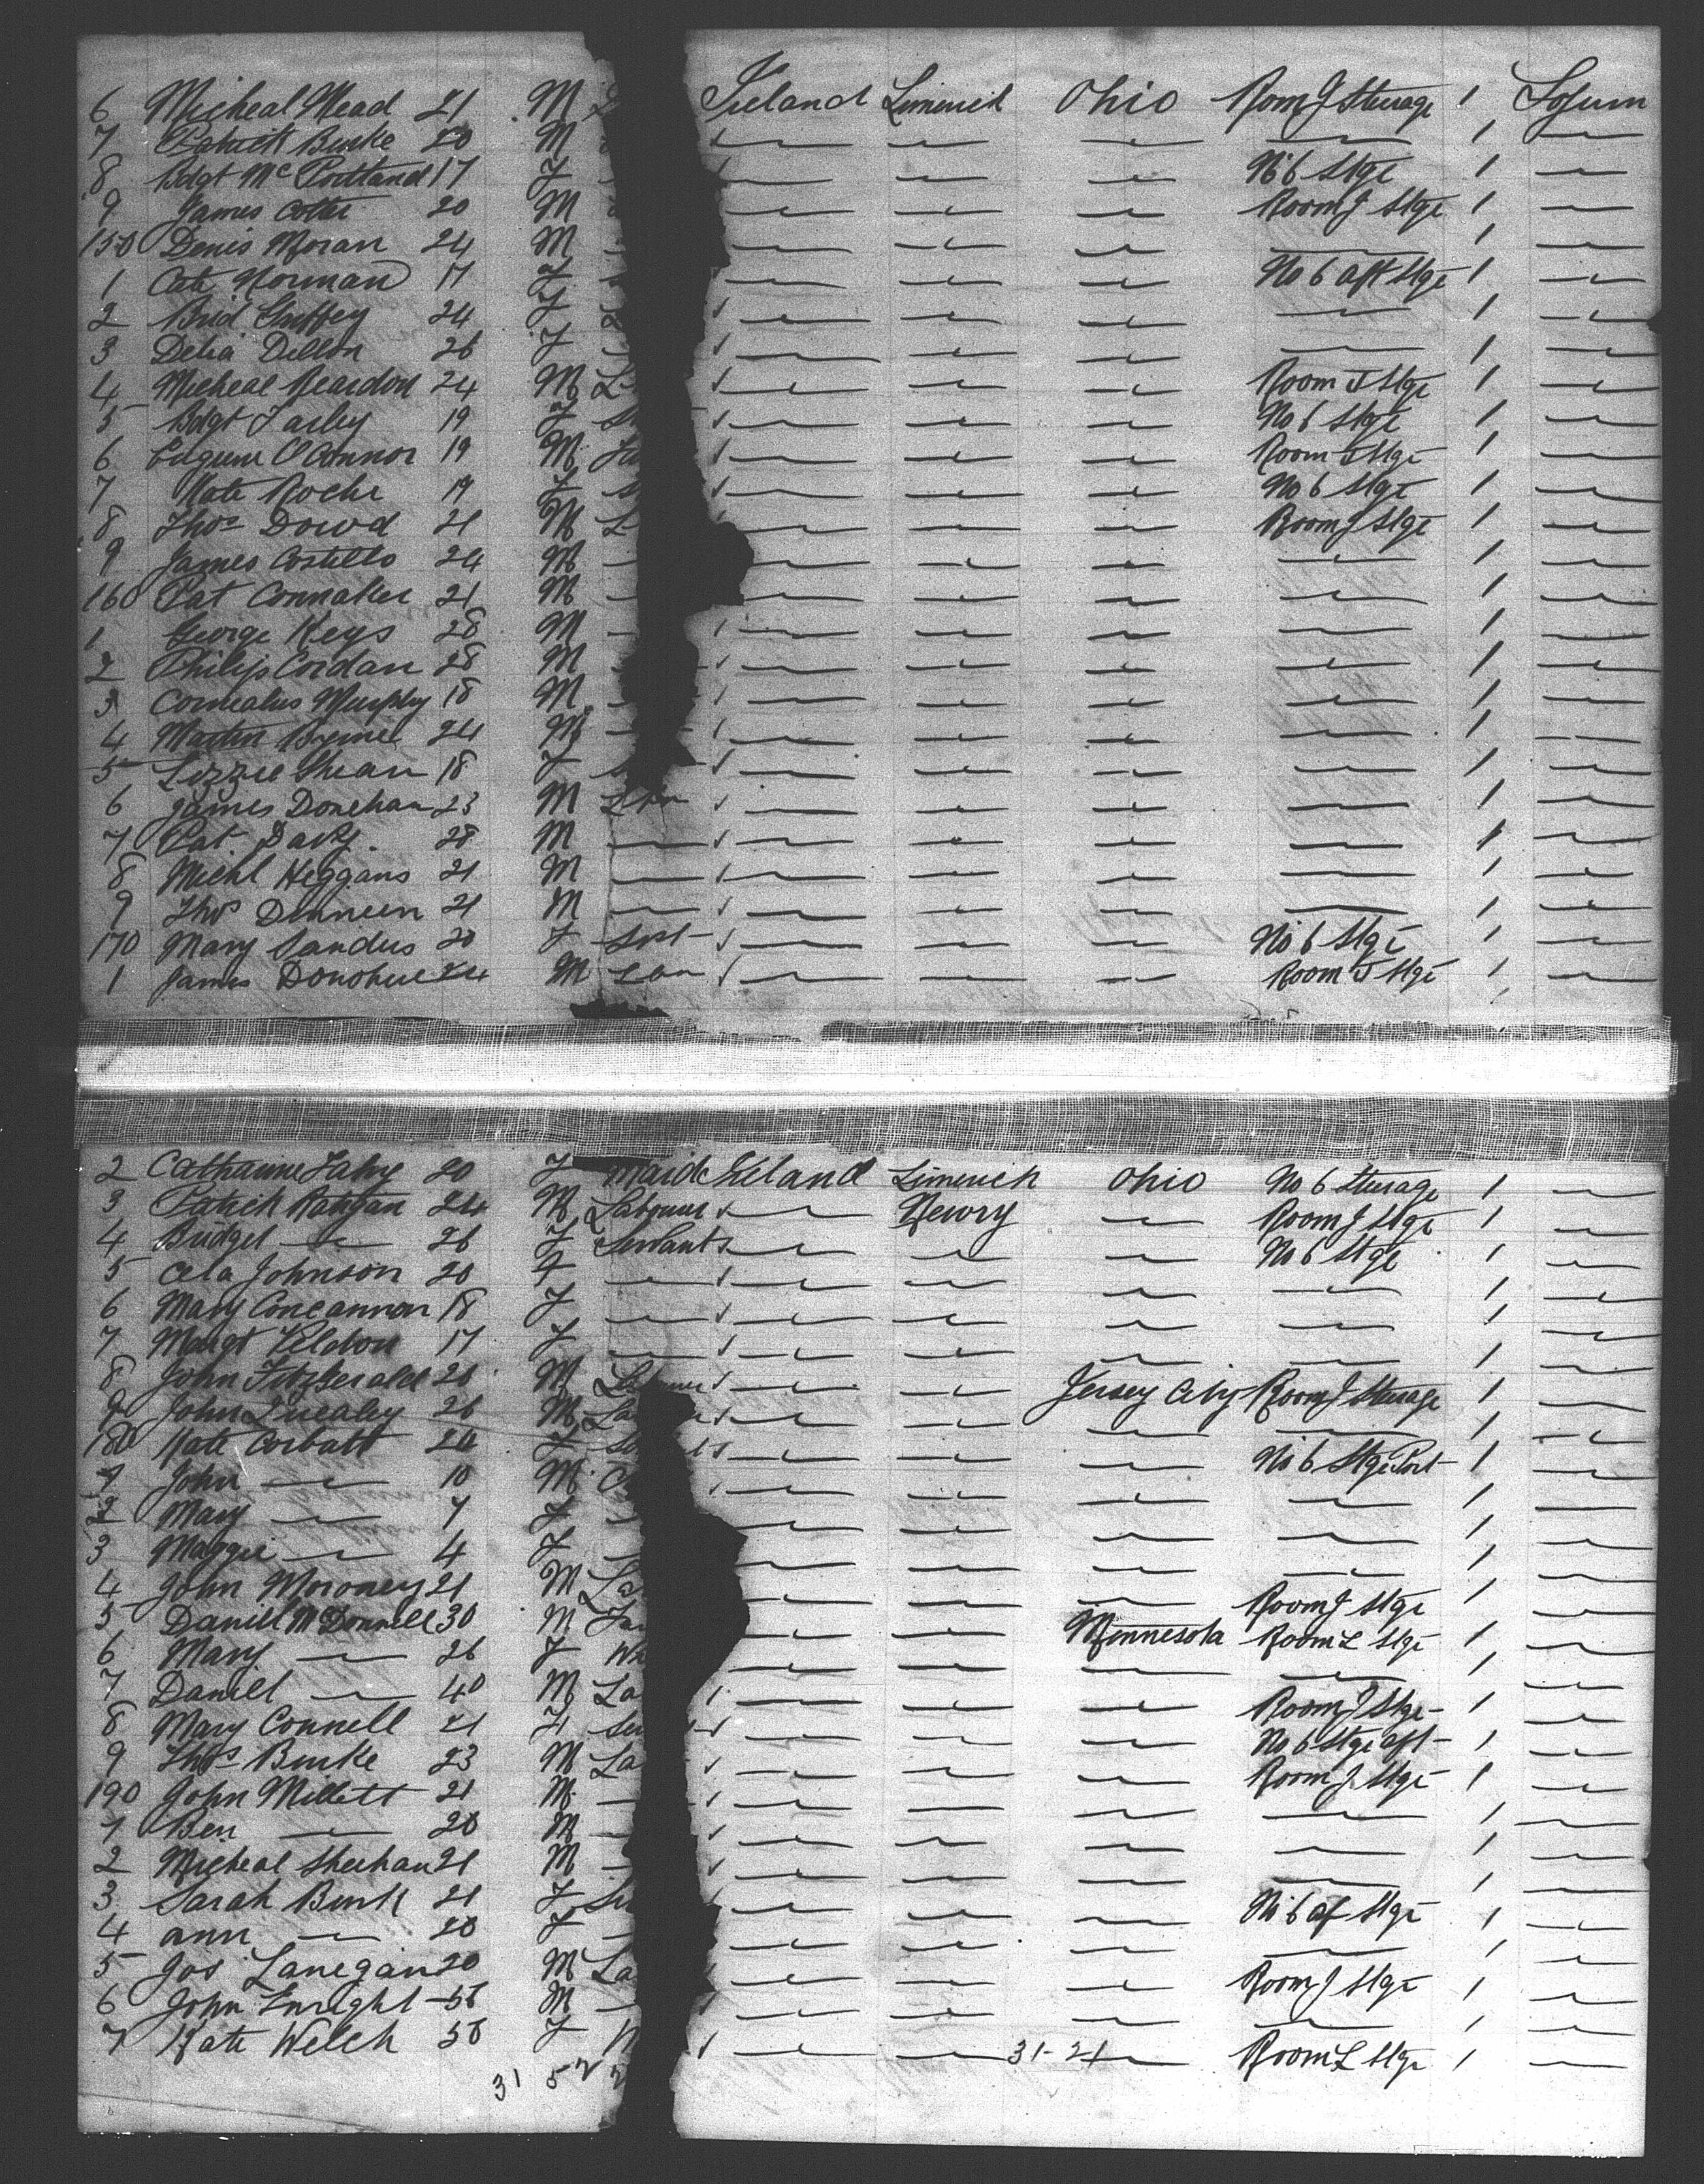 6 Micheal Mead 21 M Ireland Limerick Ohio Room J Sterage 1
7 Patrick Burke 20 M 1
8 Bdgt Mc Portland 17 F No 6 Stge 1
9 James Cotter 20 M Room J Stge 1
150 Denis Moran 24 M 1
1 Cate Norman 17 F No 6 aft Stge 1
2 Brid Griffey 24 F 1
3 Delia Dillon 26 F 1
4 Micheal Reardon 24 M L Room J Stge 1
5 Bdgt Farley 19 F No 6 Stge 1
6 Eugene O'Connor 19 M Room J Stge 1
7 Kate Roche 19 F No 6 Stge 1
8 Thos Dowd 21 M L Room J Stge 1
9 James Costello 24 M 1
160 Pat Connaker 21 M 1
1 George Keys 28 M 1
2 Philip Cordan 28 M 1
3 Cornealus Murphy 18 M 1
4 Martin 24 M 1
5 Lizzie Shean 18 F 1
6 James Donehan 23 M 1
7 Pat. Davy. 28 M 1
8 Michl Heggans 21 M 1
9 Thos Dinneen 21 M 1
170 Mary Sandus 20 F No 6 Stge 1
1 James Donohue 24 M Room J Stge 1
2 Catharine Fahy 20 F Maid Ireland Limerick Ohio No 6 Sterage 1
3 Patrick Rangan 24 M Labourer Newry Room J Stge 1
4 Bridget 26 F Servants No 6 Stge 1
5 Cela Johnson 20 F 1
6 Mary Concannon 18 F 1
7 Margt Veldon 17 F 1
8 John Fitzgerald 26 M Jersey City Room J Sterage 1
9 John Quealey 26 M La 1
180 Kate Corbatt 24 F No 6 Stge Port 1
1 John 10 M 1
2 Mary 7 F 1
3 Maggie 4 F 1
4 John Moroney 21 M La Room J Stge 1
5 Daniel McDonnell 30 M Minnesota Room L Stge 1
6 Mary 26 F 1
7 Daniel 40 M La Room J Stge 1
8 Mary Connell 21 F No 6 Stge aft 1
9 Thos Burke 23 M La Room J Stge 1
190 John Millett 21 M 1
1 Ben 20 M 1
2 Micheal Sheehan 21 M 1
3 Sarah Burk 21 F No 6 af Stge 1
4 ann 20 F 1
5 Jos Lanegan 20 M La Room J Stge 1
6 John Enright M 1
7 Kate Welch F 31-21 Room L Stge 1
31 52